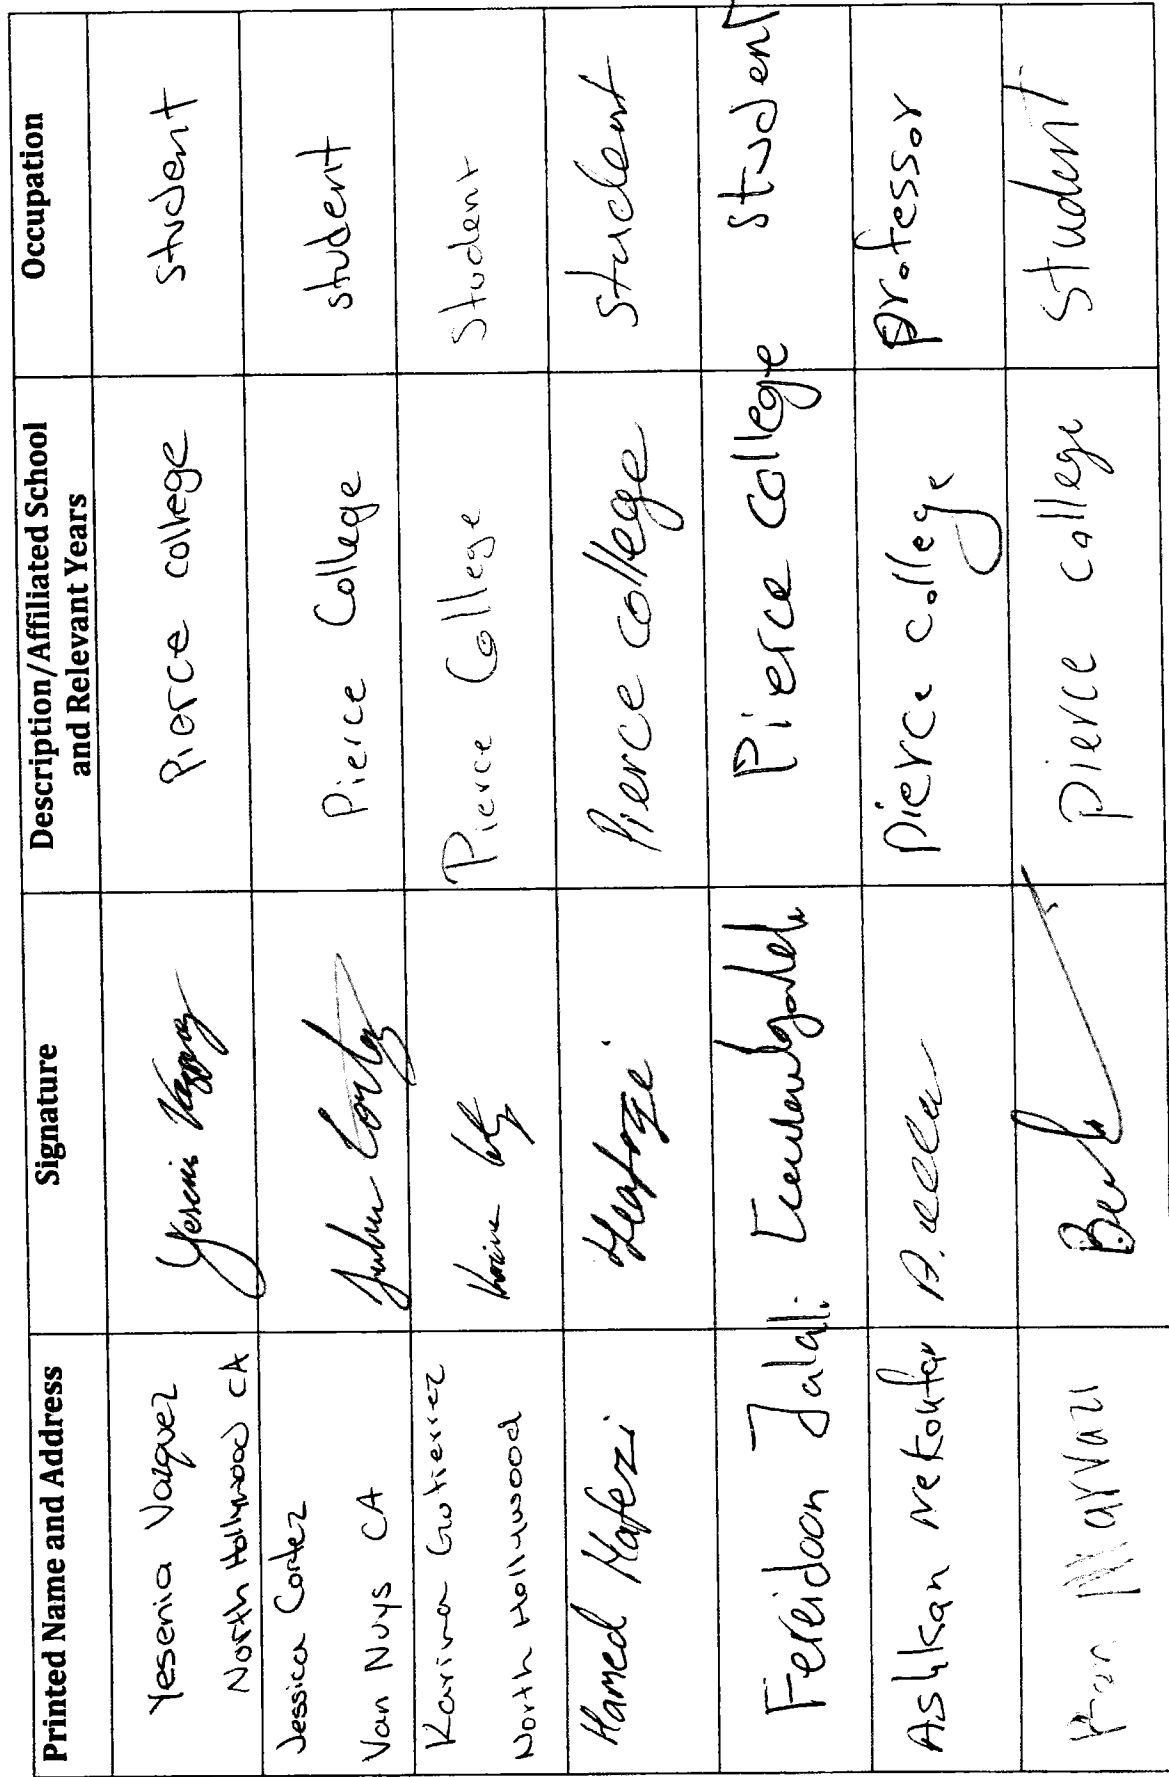 Printed Name and Address
Signature
Description/Affiliated School
and Relevant Years
Occupation
Yesenia Vazquez
North Hollywood CA
Yesenia Vazquez
Pierce college
student
Jessica Cortez
Van Nuys CA
Cortez
Pierce College
student
Karina Gutierrez
North Hollywood
Karina
Pierce College
Student
Hamed Hafezi
Hafezi
Pierce college
student
Fereidoon Jalali
Pierce college
student
Ashkan nekoufar
Pierce college
professor
Marvazi
pierce college
student